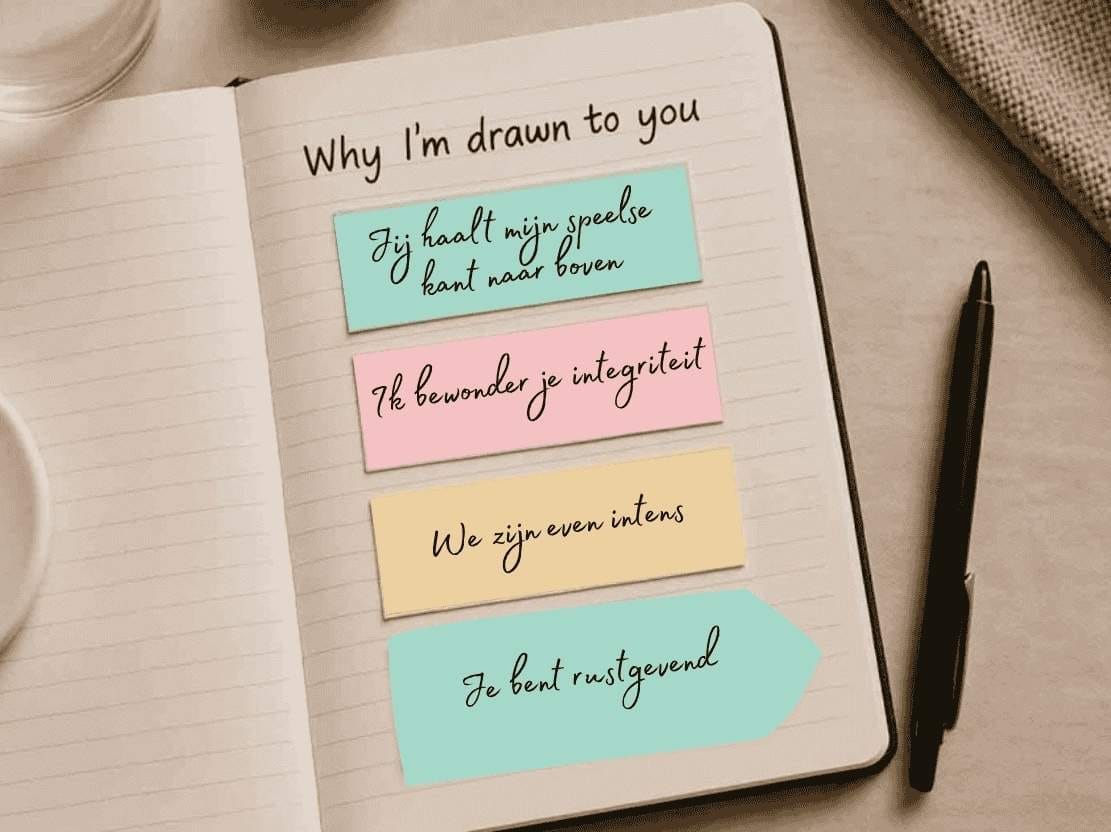 Why I'm drawn to you
Jij haalt mijn speelse
kant naar boven
Ik bewonder je integriteit
We zijn even intens
Je bent rustgevend